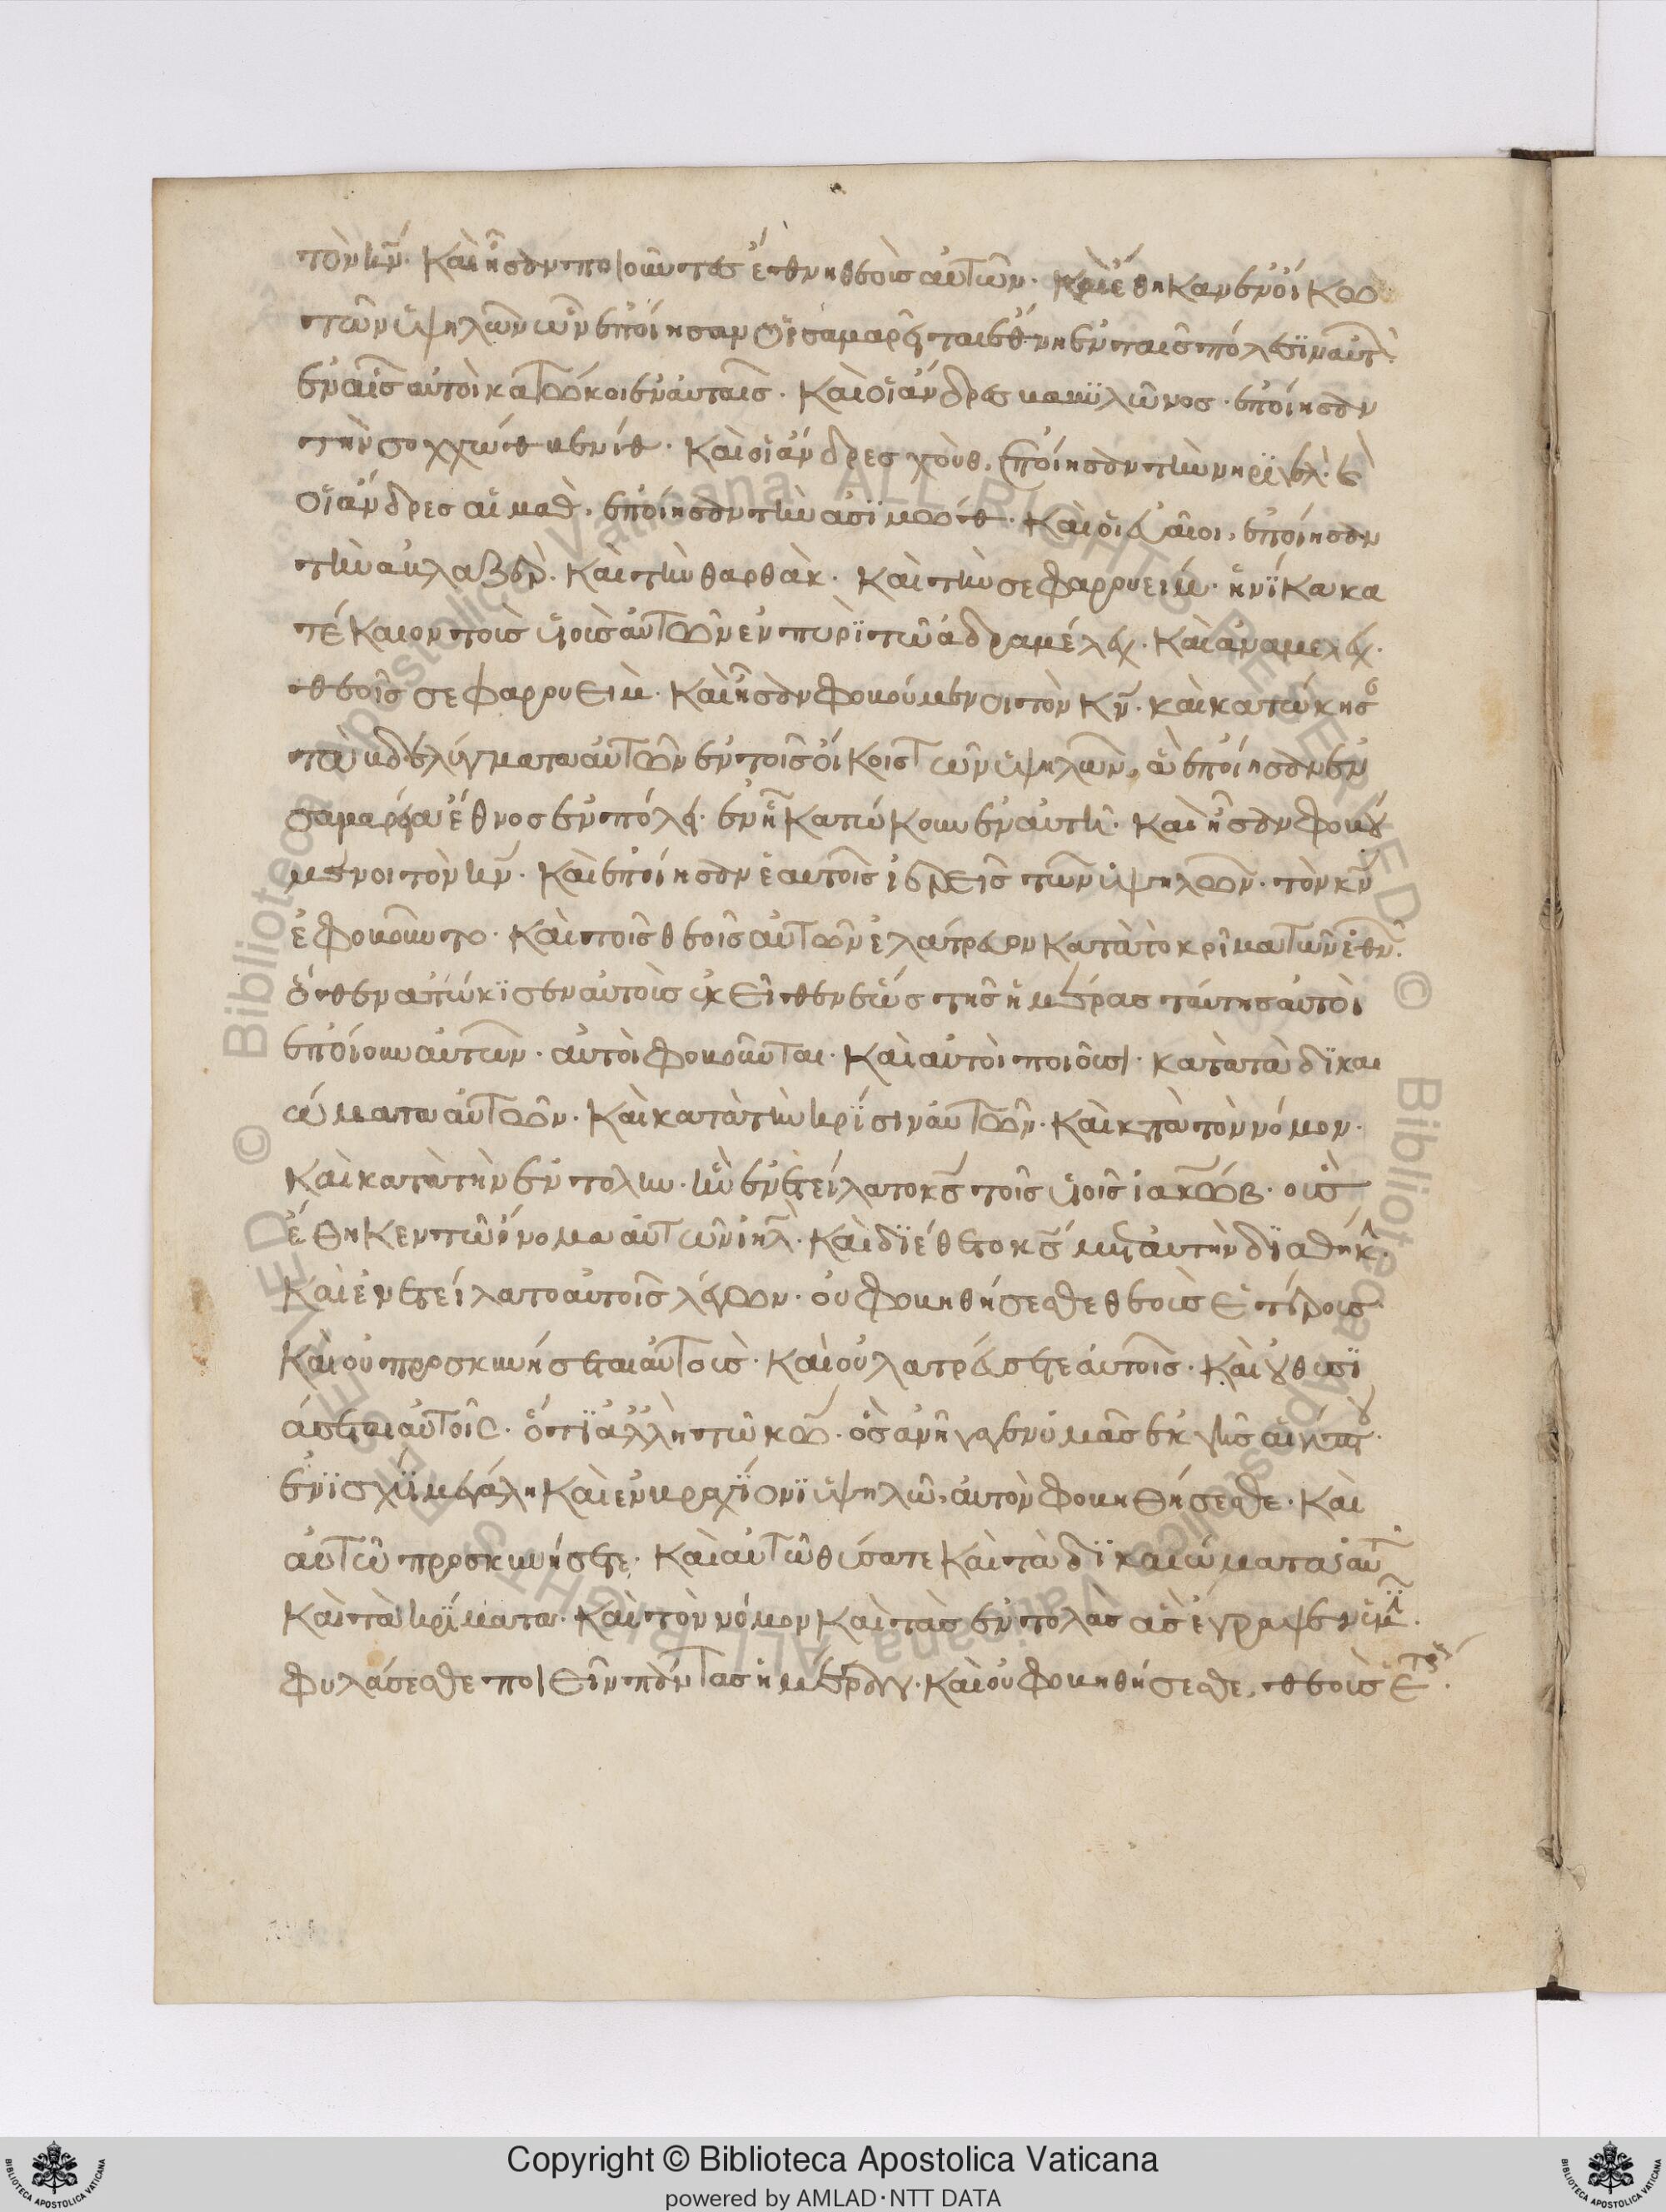 τὸν κν̅. καὶ ἦσαν ποιοῦντες ἔθνη θεοὶς αὐτῶν. καὶ ἔθηκαν ἐν οἴκω
τῶν ὑψηλῶν ὧν ἐποίησαν οἱ σαμαρεῖται ἔθνη ἐν ταῖς πόλεσϊν αὐτ
ἐν αἷς αὐτοὶ κατώκοι ἐν αὐταις. καὶ οἱ ἄνδρες βαβϋλῶνος. ἐποίησαν
τὴν σοχχὼθ βενίθ. καὶ οἱ ἄνδρες χοὺθ, ἐποίησαν τὴν νηρϊγελ. καὶ
οἱ ἄνδρες αἰμαθ, ἐποίησαν τὴν ἀσϊμώθ. καὶ οἱ εὐαῖοι, ἐποίησαν
τὴν αβλαζερ. καὶ τὴν θαρθὰκ. καὶ τὴν σεφαρρουειμ. ἡνίκα κα
τέκαιον τοὶς υἱοὶς αὐτῶν εν πυρὶ τῶ ἀδραμέλεχ. καὶ ἀναμελεχ.
θεοῖς σεφαρρυειμ. καὶ ἦσαν φοβούμενοι τὸν κν̅. καὶ κατώκησ
τὰ βδελύγματα αὐτῶν ἐν τοῖς οἴκοις τῶν ὑψηλῶν, ἃ ἐποίησαν ἐν
σαμαρεία ἔθνος ἐν πόλει. ἐν ἧ κατώκουν ἐν αὐτῆ. καὶ ἦσαν φοβού
μενοι τὸν κν̅. καὶ ἐποίησαν ἑαυτοῖς ἱερεῖς τῶν ὑψηλῶν. τὸν κν̅
ἐφοβοῦντο. καὶ τοῖς θεοῖς αὐτῶν ἐλάτρευον κατὰ τὸ κρῖμα τῶν ἐθν.
ὅθεν ἀπώκϊσεν αὐτοὶς ἐκεῖθεν ἕως τῆς ἡμέρας ταύτης αὐτοὶ
ἐποίουν αὐτῶν. αὐτοὶ φοβοῦνται. καὶ αὐτοὶ ποιοῦσι. κατὰ τὰ δϊκαι
ώματα αὐτῶν. καὶ κατὰ τὴν κρϊσιν αὐτῶν. καὶ κτὰ τὸν νόμον.
καὶ κατὰ τὴν ἐντολην. ἣν ἐνετείλατο κς̅ τοῖς υἱοῖς ἰακώβ. οὗ
ἔθηκεν τῶ ὄνομα αὐτῶν ιηλ̅. καὶ διέθετο κς̅ μετ αυτὴν δϊαθήκ.
καὶ ἐνετείλατο αὐτοῖς λέγων. οὐ φοβηθήσεσθε θεοὶς ἑτέροις
καὶ οὐ προσκυνήσεται αὐτοις. καὶ οὐ λατρεύσετε αὐτοῖς. καὶ οὐ θυσϊ
άσεται αὐτοῖς. ὅτϊ ἀλλὴ τῶ κω̅. ὃς ἀνήγαγεν ὑμᾶς ἐκ γῆς αἰγύπτου.
ἐν ϊσχύϊ μεγάλη καὶ εν βραχϊονϊ ὑψηλῶ, αὐτὸν φοβηθήσεσθε. καὶ
αὐτῶ προσκυνήσετε. καὶ αὐτῶ θύσατε καὶ τὰ δϊκαιώματα αὐτ
καὶ τὰ κρϊματα. καὶ τὸν νόμον καὶ τὰς ἐντολὰς ἃς ἔγραψεν ὑμῖ.
φυλάσεσθε ποιεῖν πάντας ἡμέρων. καὶ οὐ φοβηθήσεσθε, θεοὶς ἑτερ.
Copyright © Biblioteca Apostolica Vaticana
powered by AMLAD·NTT DATA